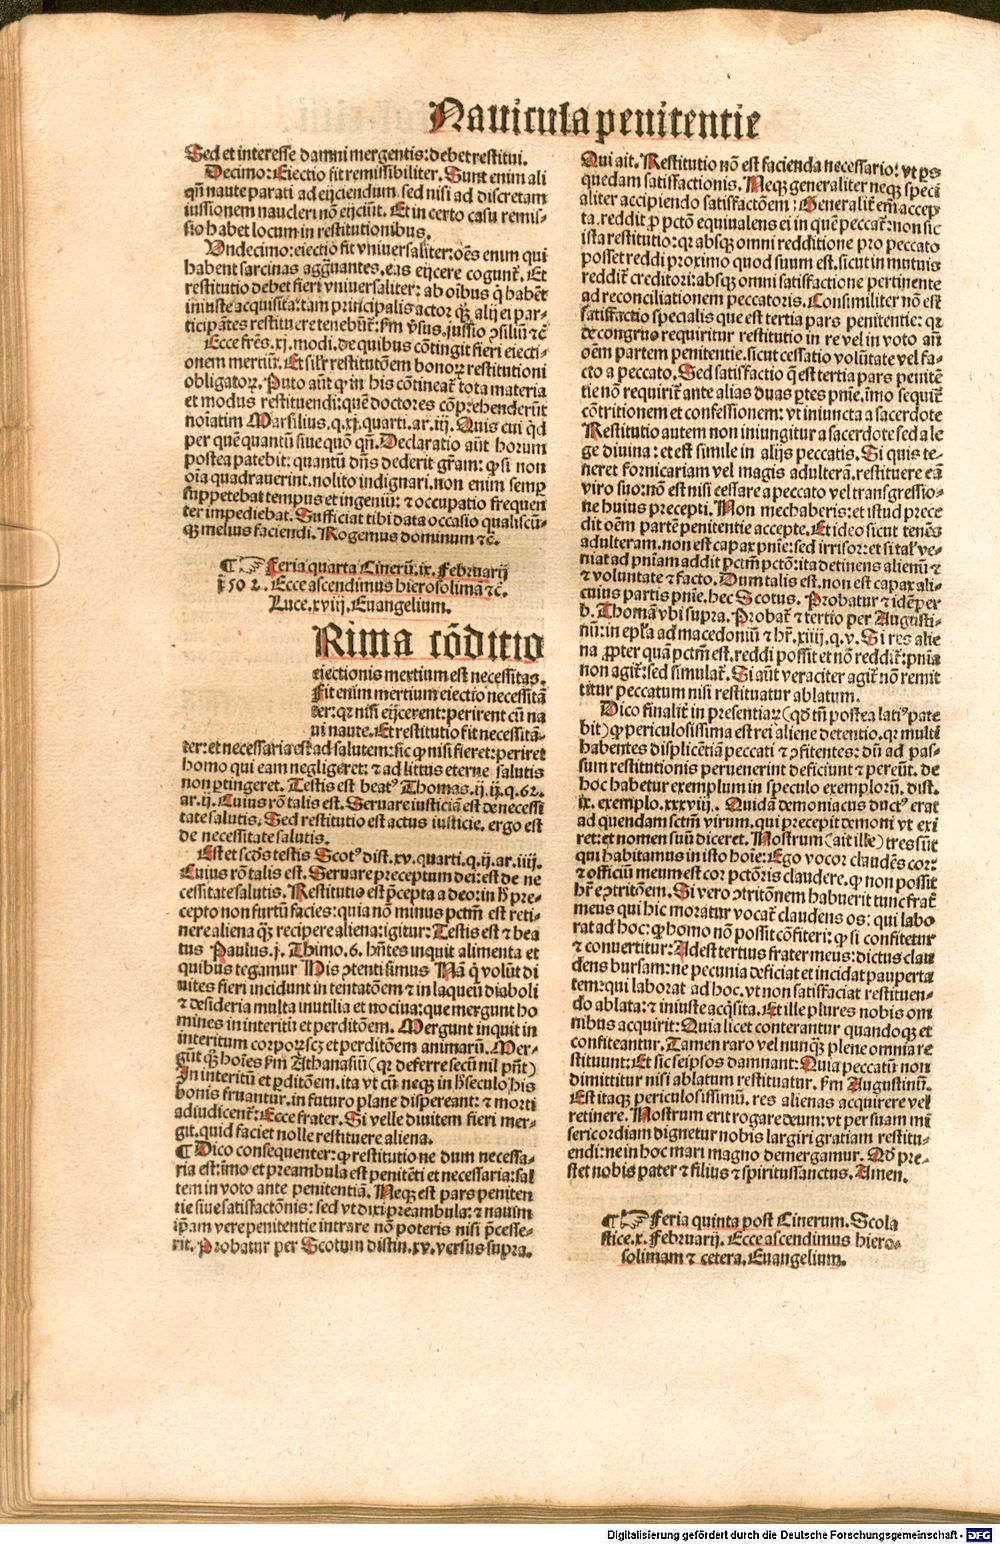 Nauicula penitentie
Sed et interesse damni mergentis: debet restitui.
Decimo: Eiectio fit remissibiliter. Sunt enim ali
qñ naute parati ad eijciendum. sed nisi ad discretam
iussionem naucleri nõ eijciũt. Et in certo casu remis-
sio habet locum in restitutionibus.
Vndecimo: eiectio fit vniuersaliter: oẽs enim qui
habent sarcinas aggrauantes. eas eijcere cogunt᷑. Et
restitutio debet fieri vniuersaliter: ab oĩbus q̃ habẽt
iniuste acquisita: tam principalis actor q̃ꝫ alij ei par-
ticipãtes restituere tenebũt᷑: fm̃ ṽsus. iussio ꝯsiliũ ⁊c̃
Ecce fr̃es. xj. modi. de quibus cõtingit fieri eiecti-
onem mertiũ. Et sil̃r restitutõem bonoꝝ restitutioni
obligatoꝝ. Puto aũt ꝙ in his cõtineat᷑ tota materia
et modus restituendi: quẽ doctores cõp̱rehenderũt
noĩatim Marsilius. q. xj. quarti. ar. iij. Quis cui q̇d
per quẽ quantũ siue quõ qñ. Declaratio aũt horum
postea patebit: quantũ dñs dederit gr̃am: ꝙ si non
oĩa quadrauerint. nolito indignari. non enim semꝑ
suppetebat tempus et ingeniũ: ⁊ occupatio frequen
ter impediebat. Sufficiat tibi data occasio qualiscũ-
q̃ꝫ melius faciendi. Rogemus dominum ⁊c̃.
¶ ☞ Feria quarta Cinerũ. ix. Februarij
1502. Ecce ascendimus hierosolima ⁊c̃.
Luce. xviij. Euangelium.
Rima cõditio
eiectionis mertium est necessitas.
Fit enim mertium eiectio necessitã
ter: qꝛ nisi eijcerent: perirent cũ na
ui naute. Et restitutio fit necessitã-
ter: et necessaria est ad salutem: sic ꝙ nisi fieret: periret
homo qui eam negligeret: ⁊ ad littus eterne salutis
non ꝑtingeret. Testis est beatꝰ Thomas. ij. ij. q. 62.
ar. ij. Cuius rõ talis est. Seruare iusticiã est de necessi
tate salutis. Sed restitutio est actus iusticie. ergo est
de necessitate salutis.
Est et scd̃s testis Scotꝰ dist. xv. quarti. q. ij. ar. iiij.
Cuius rõ talis est. Seruare preceptum dei: est de ne
cessitate salutis. Restitutio est p̃cepta a deo: in h̃ pre-
cepto non furtũ facies: quia nõ minus pctm̃ est reti-
nere aliena q̃ꝫ recipere aliena: igitur: Testis est ⁊ bea
tus Paulus. j. Thimo. 6. hñtes inquit alimenta et
quibus tegamur His ꝯtenti simus Nã q̃ volũt di
uites fieri incidunt in tentatõem ⁊ in laqueũ diaboli
⁊ desideria multa inutilia et nociua: que mergunt ho
mines in interitũ et perditõem. Mergunt inquit in
interitum corpoꝝ scꝫ et perditõem animarũ. Mer-
gũt q̃ꝫ hoĩes fm̃ Athanasiũ (qꝛ deferre secũ nil pñt)
In interitũ et ꝑditõem. ita vt cũ neqꝫ in h̃ seculo his
bonis fruantur. in futuro plane dispereant: ⁊ morti
adiudicent᷑: Ecce frater. Si velle diuitem fieri mer-
git. quid faciet nolle restituere aliena.
¶ Dico consequenter: ꝙ restitutio ne dum necessa-
ria est: imo et preambula est penitẽti et necessaria: sal
tem in voto ante penitentiã. Neqꝫ est pars peniten
tie siue satisfactõnis: sed vt dixi preambula: ⁊ nauim
ip̃am vere penitentie intrare nõ poteris nisi p̃cesse-
rit. Probatur per Scotum distin. xv. versus supra.
Qui ait. Restitutio nõ est facienda necessario: vt ps
quedam satisfactionis. Neqꝫ generaliter neqꝫ speci
aliter accipiendo satisfactõem: Generalit᷑ em̃ accep
ta. reddit ꝓ pctõ equiualens ei in quẽ peccat᷑: non sic
ista restitutio: qꝛ absqꝫ omni redditione pro peccato
posset reddi proximo quod suum est. sicut in mutuis
reddit᷑ creditori: absqꝫ omni satisfactione pertinente
ad reconciliationem peccatoris. Consimiliter nõ est
satisfactio specialis que est tertia pars penitentie: qꝛ
de congruo requiritur restitutio in re vel in voto añ
oẽm partem penitentie. sicut cessatio volũtate vel fa-
cto a peccato. Sed satisfactio q̃ est tertia pars penitẽ
tie nõ requirit᷑ ante alias duas ꝑtes pñie. ĩmo sequit᷑
cõtritionem et confessionem: vt iniuncta a sacerdote
Restitutio autem non iniungitur a sacerdote sed a le
ge diuina: et est simile in alijs peccatis. Si quis te-
neret fornicariam vel magis adulterã. restituere eã
viro suo: nõ est nisi cessare a peccato vel transgressio-
ne huius precepti. Non mechaberis: et istud prece
dit oẽm partẽ penitentie accepte. Et ideo sicut tenẽs
adulteram. non est capax pñie: sed irrisor: et si tal᷑ ve-
niat ad pñiam addit p̃ctm pctõ: ita detinens alienũ ⁊
⁊ voluntate ⁊ facto. Dum talis est. non est capax ali-
cuius partis pñie. hec Scotus. Probatur ⁊ idẽ per
b. Thomã vbi supra. Probat᷑ ⁊ tertio per Augusti-
nũ: in ep̃la ad macedoniũ ⁊ hr̃. xiiij. q. v. Si res alie
na ꝓpter quã pctm̃ est. reddi possit et nõ reddit᷑: pñia
non agit᷑: sed simulat᷑. Si aũt veraciter agit᷑ nõ remit
titur peccatum nisi restituatur ablatum.
Dico finalit᷑ in presentiaꝝ (qd̃ tñ postea latiꝰ pate
bit) ꝙ periculosissima est rei aliene detentio. qꝛ multi
habentes displicẽtiam peccati ⁊ ꝯfitentes: dũ ad pas-
sum restitutionis peruenerint deficiunt ⁊ pereũt. de
hoc habetur exemplum in speculo exemploꝝ. dist.
ix. exemplo. xxxviij. Quidã demoniacus ductꝰ erat
ad quendam sctm̃ virum. qui precepit demoni vt exi
ret: et nomen suũ diceret. Nostrum (ait ille) tres sũt
qui habitamus in isto hoĩe: Ego vocor claudẽs cor:
⁊ officiũ meum est cor pctõris claudere. ꝙ non possit
hr̃e ꝯtritõem. Si vero ꝯtritõnem habuerit tunc frat᷑
meus qui hic moratur vocat᷑ claudens os: qui labo
rat ad hoc: ꝙ homo nõ possit cõfiteri: ꝙ si confitetur
⁊ conuertitur: Adest tertius frater meus: dictus clau
dens bursam: ne pecunia deficiat et incidat pauperta
tem: qui laborat ad hoc. vt non satisfaciat restituen-
do ablata: ⁊ iniuste acq̃sita. Et ille plures nobis om
nibus acquirit: Quia licet conterantur quandoqꝫ et
confiteantur. Tamen raro vel nunq̃ꝫ plene omnia re
stituunt: Et sic seipsos damnant: Quia peccatũ non
dimittitur nisi ablatum restituatur. fm̃ Augustinũ.
Est itaqꝫ periculosissimũ. res alienas acquirere vel
retinere. Nostrum erit rogare deum: vt per suam mi
sericordiam dignetur nobis largiri gratiam restitu-
endi: ne in hoc mari magno demergamur. Qd̃ pre-
stet nobis pater ⁊ filius ⁊ spiritussanctus. Amen.
¶ ☞ Feria quinta post Cinerum. Scola
stice. x. Februarij. Ecce ascendimus hiero-
solimam ⁊ cetera. Euangelium.
Digitalisierung gefördert durch die Deutsche Forschungsgemeinschaft - DFG